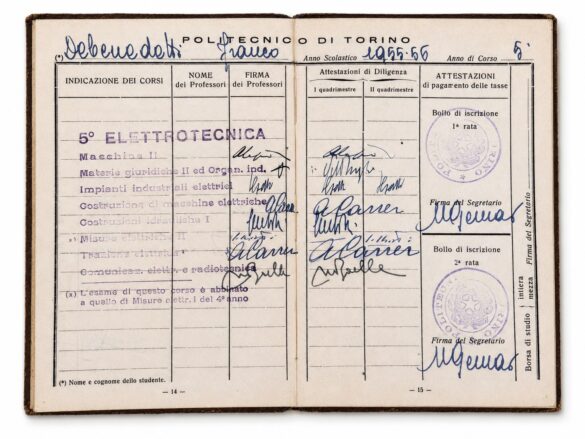 POLITECNICO DI TORINO
(*) Debenedetti Franco
Anno Scolastico 1955-56 Anno di Corso 5°
INDICAZIONE DEI CORSI
NOME dei Professori
FIRMA dei Professori
Attestazioni di Diligenza
I quadrimestre
II quadrimestre
ATTESTAZIONI di pagamento delle tasse
5° ELETTROTECNICA
Macchine II
Materie giuridiche II ed Organ. ind.
Impianti industriali elettrici
Costruzione di macchine elettriche
Costruzioni idrauliche I
Misure elettriche II
Trazione elettrica
Comunicaz. elettr. e radiotecnica
(x) L'esame di questo corso è abbinato
a quello di Misure elettr. I del 4° anno
Bollo di iscrizione
1ª rata
Firma del Segretario
Bollo di iscrizione
2ª rata
Firma del Segretario
Borsa di studio intiera mezza
Firma del Segretario
(*) Nome e cognome dello studente.
— 14 —
— 15 —